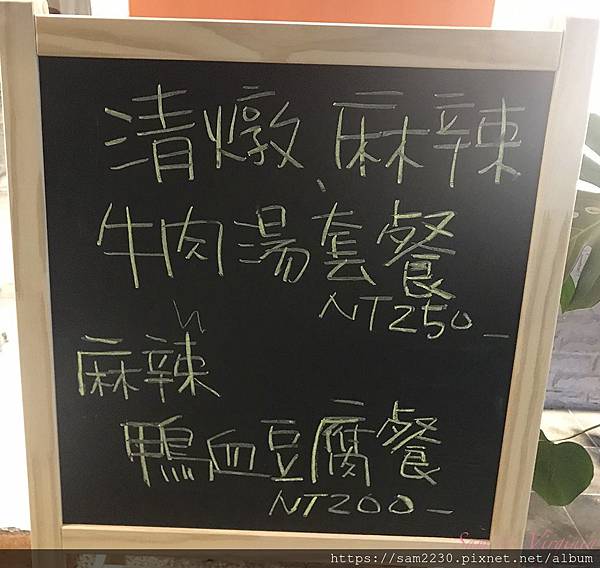 清燉、麻辣
牛肉湯套餐
NT250_
麻辣
鴨血豆腐餐
NT200_
https://sam2230.pixnet.net/album